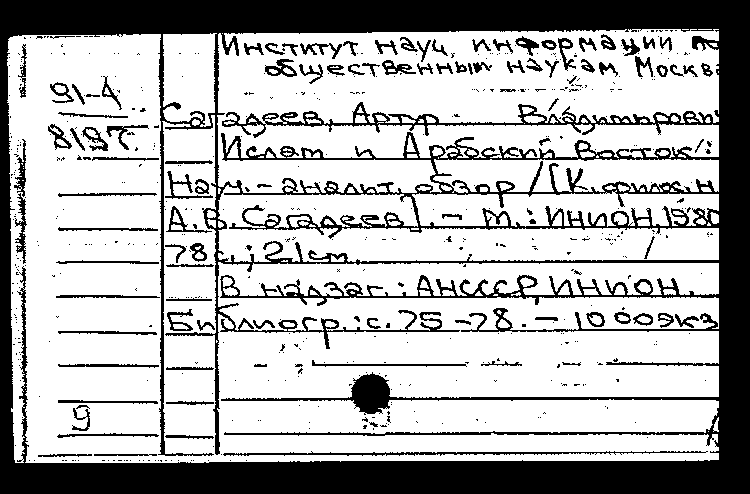 Институт науч. информации по
общественным наукам Москва
91-4
8197
Сагадеев, Артур Владимирович
Ислам и Арабский Восток :
Науч.-аналит. обзор / [К. филос. н.
А.В. Сагадеев]. - М. : ИНИОН, 1980
78 с. ; 21 см.
В надзаг. : АНСССР, ИНИОН.
Библиогр. : с. 75-78. - 1000 экз
9